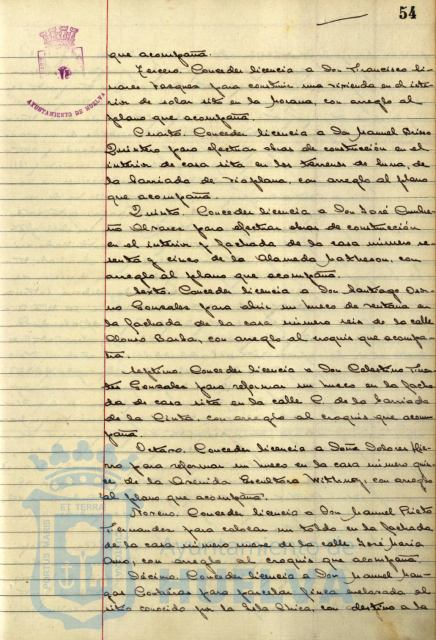 54
AYUNTAMIENTO DE HUELVA
que acompaña.
Tercero. Conceder licencia a Don Francisco Li-
nares Vazquez para construir una vivienda en el inte-
rior de solar sito en la Morana, con arreglo al
plano que acompaña.
Cuarto. Conceder licencia a Don Manuel
Quintero para efectuar obras de construcción en el
interior de casa sita en los terrenos de, de
la barriada de, con arreglo al plano
que acompaña.
Quinto. Conceder licencia a Don José
Alvarez para efectuar obras de construcción
en el interior y fachada de la casa número se-
senta y cinco de la Alameda, con
arreglo al plano que acompaña.
Sexto. Conceder licencia a Don Santiago
Gonzalez para abrir un hueco de ventana en
la fachada de la casa número seis de la calle
Alonso Barba, con arreglo al croquis que acompa-
ña.
Septimo. Conceder licencia a Don Celestino
Gonzalez para reformar un hueco en la facha-
da de casa sita en la calle C. de la barriada
de la Cinta, con arreglo al croquis que acom-
paña.
Octavo. Conceder licencia a Doña Dolores
para reformar un hueco en la casa número quin-
ce de la Avenida Escultora Withney, con arreglo
al plano que acompaña.
Noveno. Conceder licencia a Don Manuel Prieto
Fernandez para colocar un toldo en la fachada
de la casa número nueve de la calle José Maria
Amo, con arreglo al croquis que acompaña.
Décimo. Conceder licencia a Don Manuel
para parcelar finca enclavada al
sitio conocido por la Isla Chica, con destino a la
PORTUS MARIS ET TERRAE
Ayuntamiento de